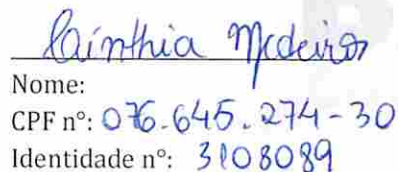 Cainthia Medeiros
Nome:
CPF nº: 076.645.274-30
Identidade nº: 3108089